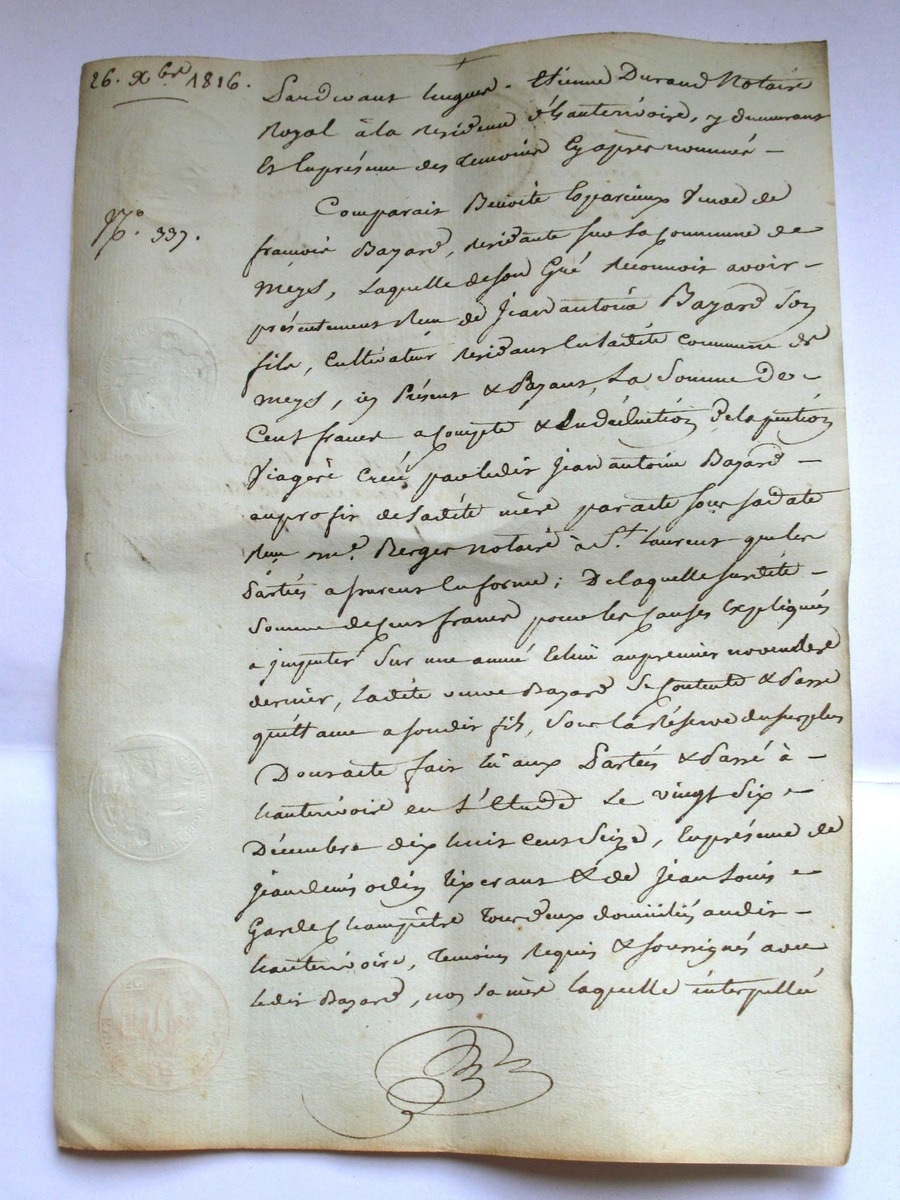 26. Xbre 1816.
Pardevant Me Etienne Durand Notaire
Royal à la residence d'hauterivoire, y demeurant
Et En présence des Temoins Cy après nommés –
N.o 337.
Comparait Benoite Veuve de
francois Bazard, residante sur la Commune de
meys, Laquelle de son Gré reconnoit avoir –
présentement Reçu de Jean antoine Bazard Son
fils, Cultivateur residant En ladite Commune de
meys, icy Présent & Payant, La Somme De –
Cent francs a Compte & En déduction De la pention
Viagere Creée par ledit Jean antoine Bazard –
au profit de ladite mère par acte sous sa date
Reçu me. Berger notaire à St. Laurent que les
Parties assurent En forme; De laquelle susdite –
Somme de Cent francs pour les Causes Expliqués
a jmputer Sur une année Echue au premier novembre
dernier, ladite veuve Bazard Se Contente & Passe
quittance a son dit fils, Sous la Réserve du surplus
Dont acte fait lu aux Parties & Passé à –
hauterivoire en L'Etude Le vingt Six –
Décembre dix huit cent Seize, En présence de
Jean denis odin Tixerant & de Jean Louis –
Garde Champêtre Tous deux domiciliés audit –
hauterivoire, Temoins Requis & soussignés avec
ledit Bazard, non sa mère laquelle interpellée